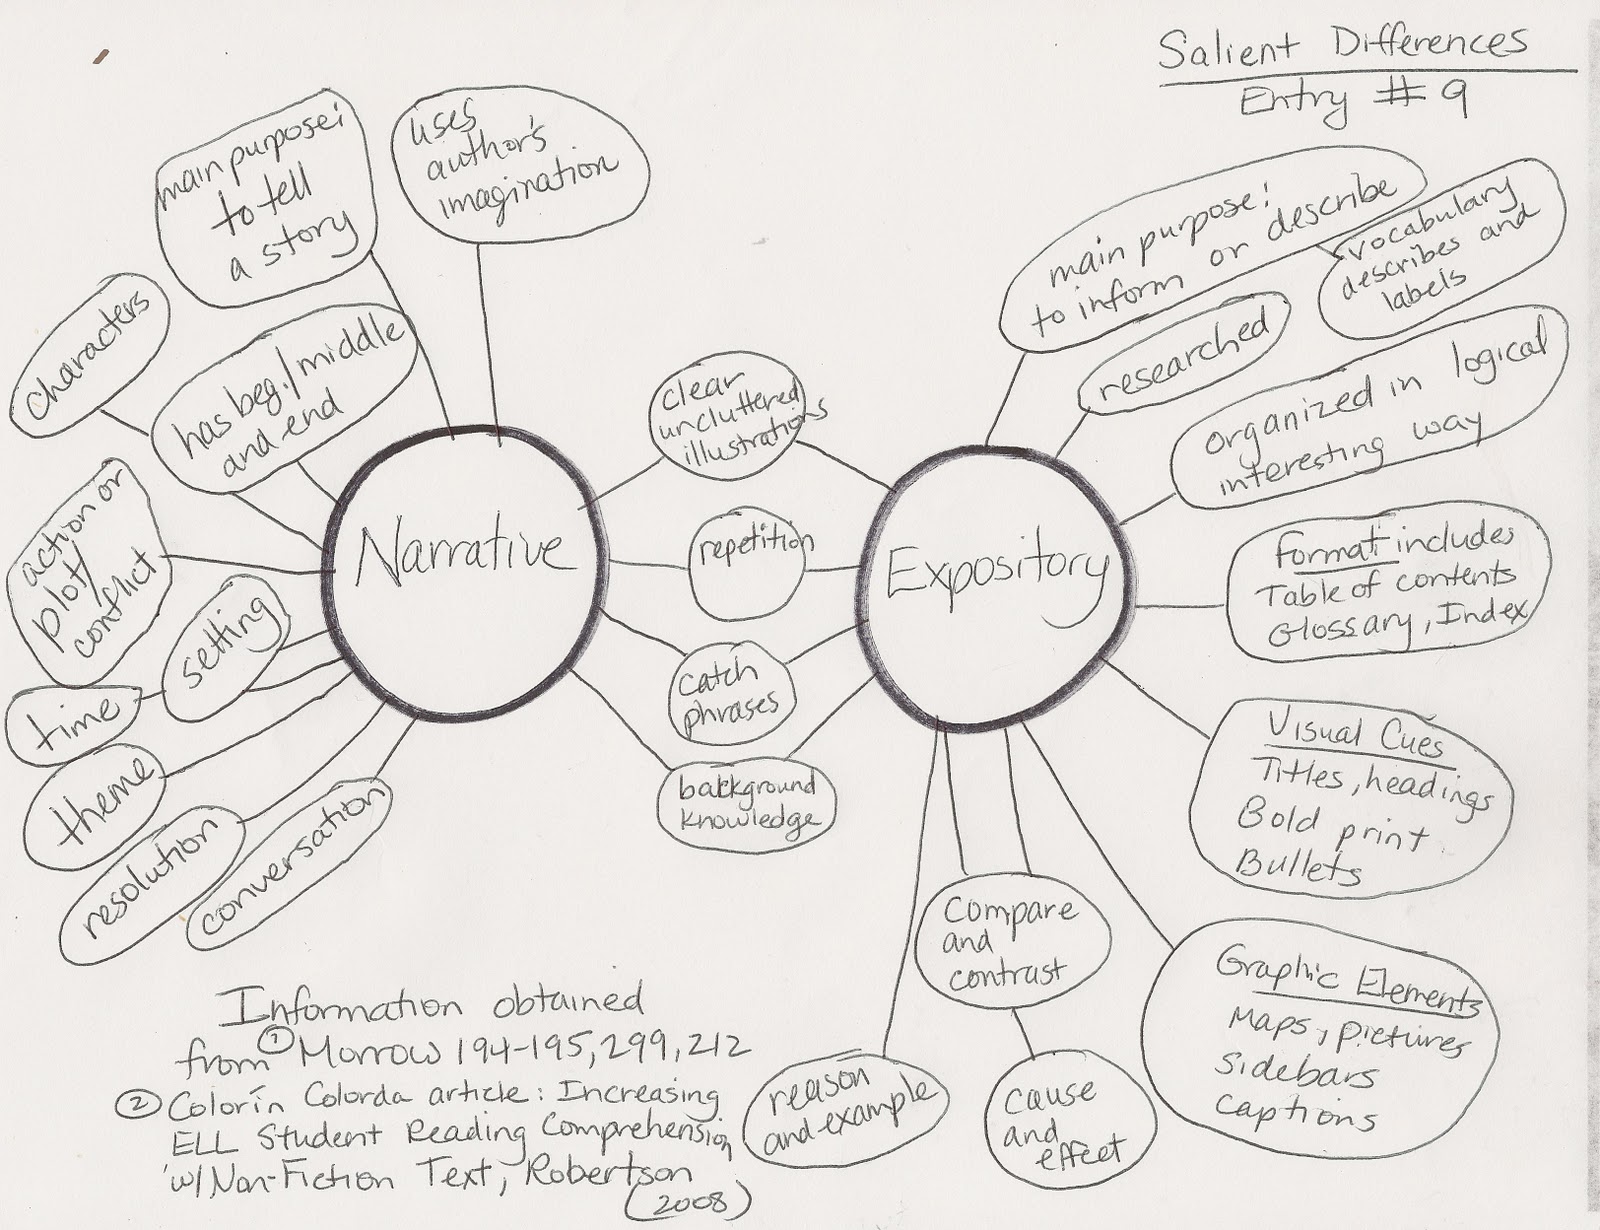 Salient Differences
Entry # 9
main purpose:
to tell
a story
uses
author's
imagination
characters
has beg./middle
and end
action or
plot/
conflict
setting
time
theme
resolution
conversation
Narrative
clear
uncluttered
illustrations
repetition
catch
phrases
background
knowledge
Expository
main purpose:
to inform or describe
vocabulary
describes and
labels
researched
organized in logical
interesting way
format includes
Table of contents
Glossary, Index
Visual Cues
Titles, headings
Bold print
Bullets
Graphic Elements
Maps, pictures
Sidebars
Captions
compare
and
contrast
cause
and
effect
reason
and example
Information obtained
from ① Morrow 194-195, 299, 212
② Colorín Colorda article: Increasing
ELL Student Reading Comprehension
w/ Non-Fiction Text, Robertson
(2008)